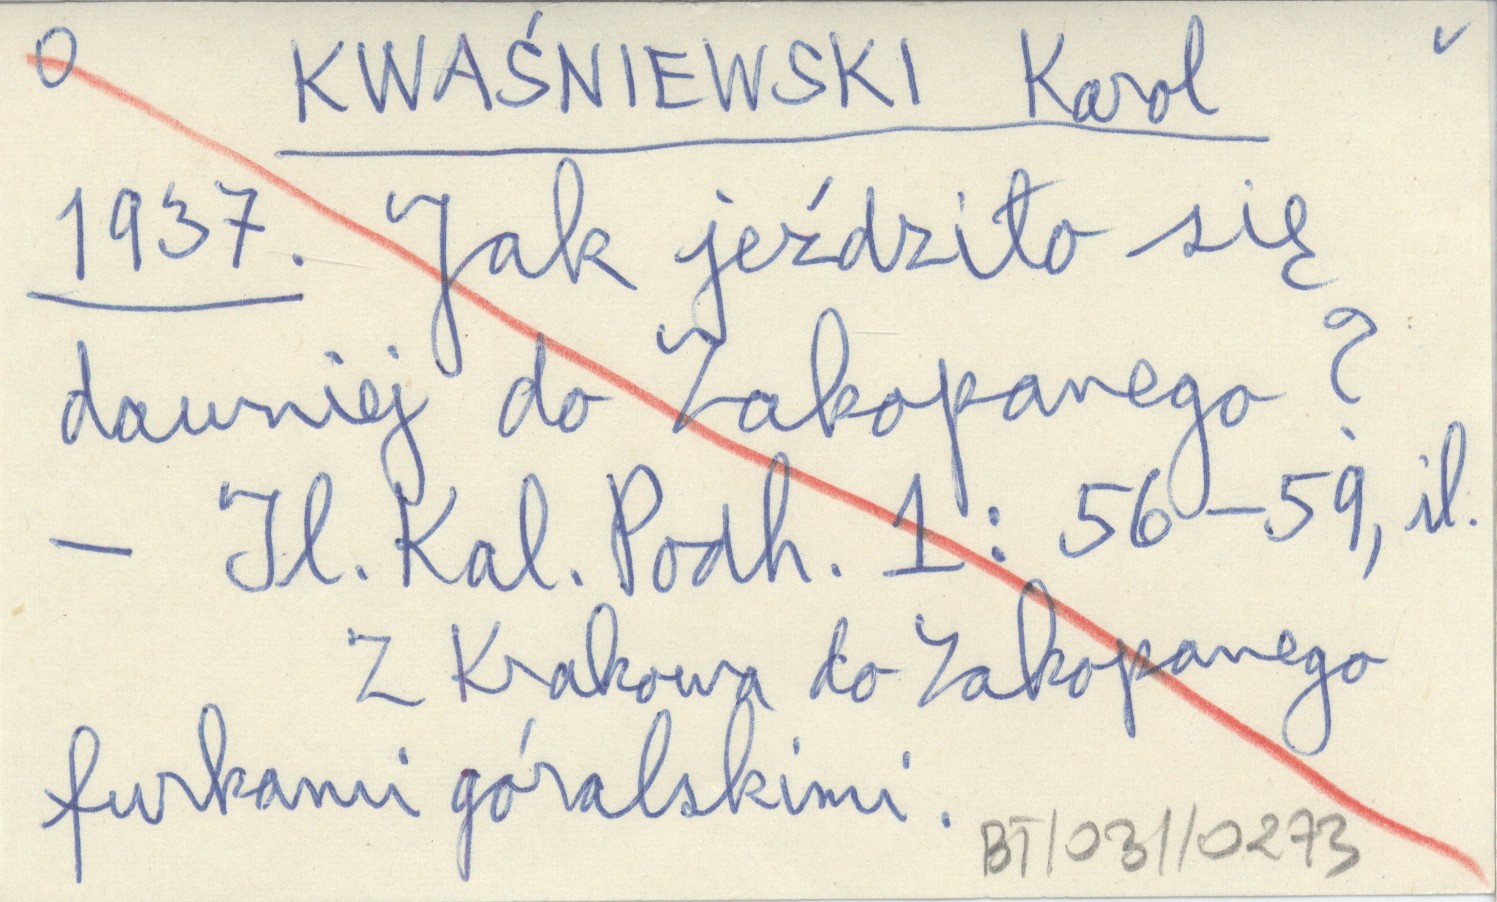 O KWAŚNIEWSKI Karol ✓
1937. Jak jeździło się
dawniej do Zakopanego?
— Il. Kal. Podh. 1: 56-59, il.
Z Krakowa do Zakopanego
furkami góralskimi.
BT/031//0273